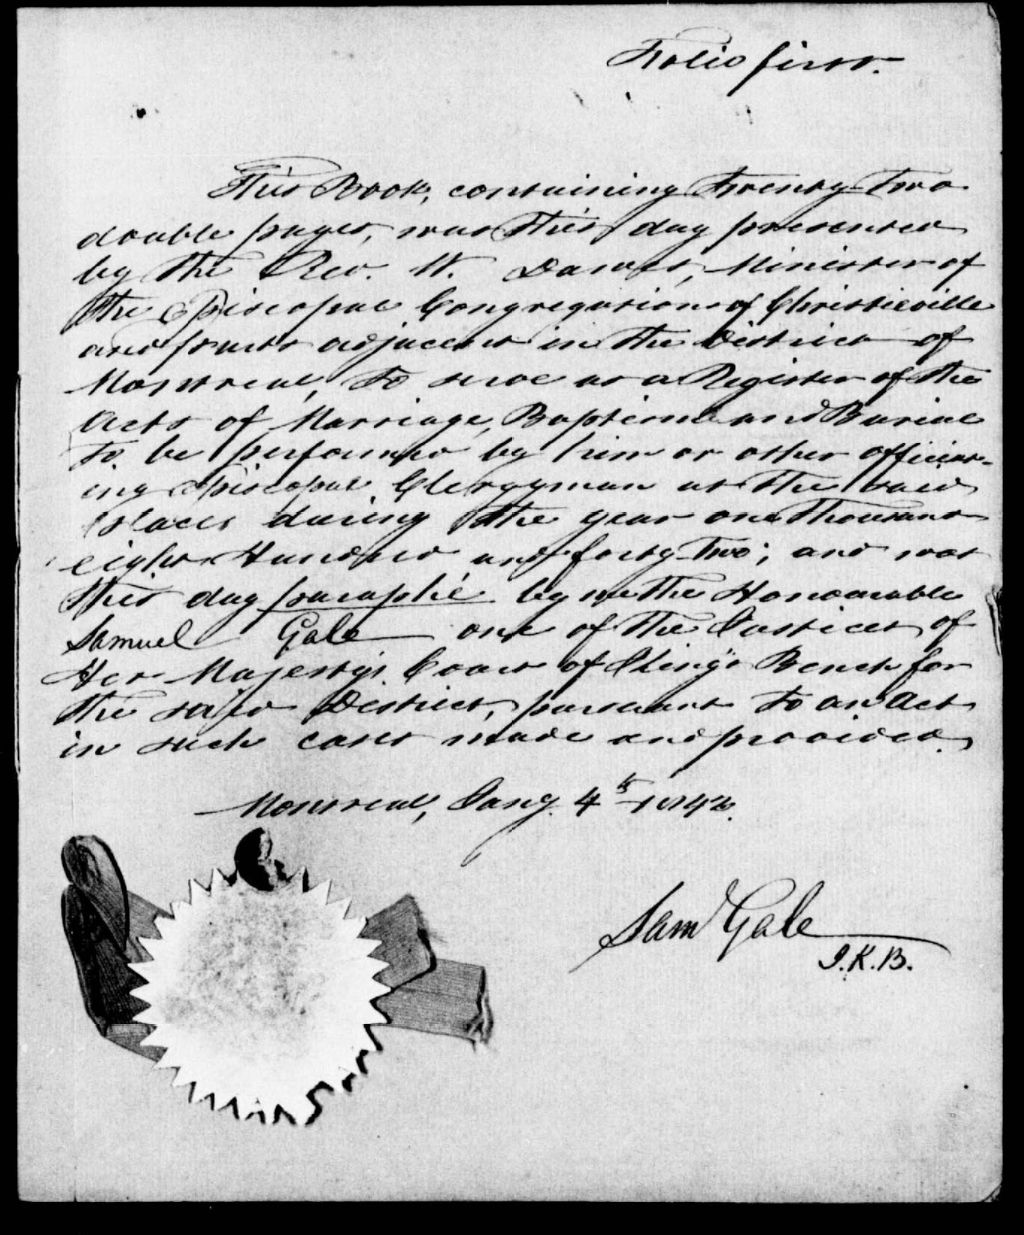 Folio first.
This Book, containing Twenty Two
double pages, was this day presented
by the Rev. W. Dawes, Minister of
the Episcopal Congregation of Christieville
and parts adjacent in the District of
Montreal, to serve as a Register of the
Acts of Marriage, Baptism and Burial
to be performed by him or other officiat-
ing Episcopal Clergyman at the said
places during the year one thousand
eight Hundred and forty-two; and was
this day paraphé by me the Honourable
Samuel Gale one of the Justices of
Her Majesty's Court of King's Bench for
the said District, pursuant to an Act
in such case made and provided.
Montreal, Jany. 4th 1842.
Saml Gale
J.K.B.